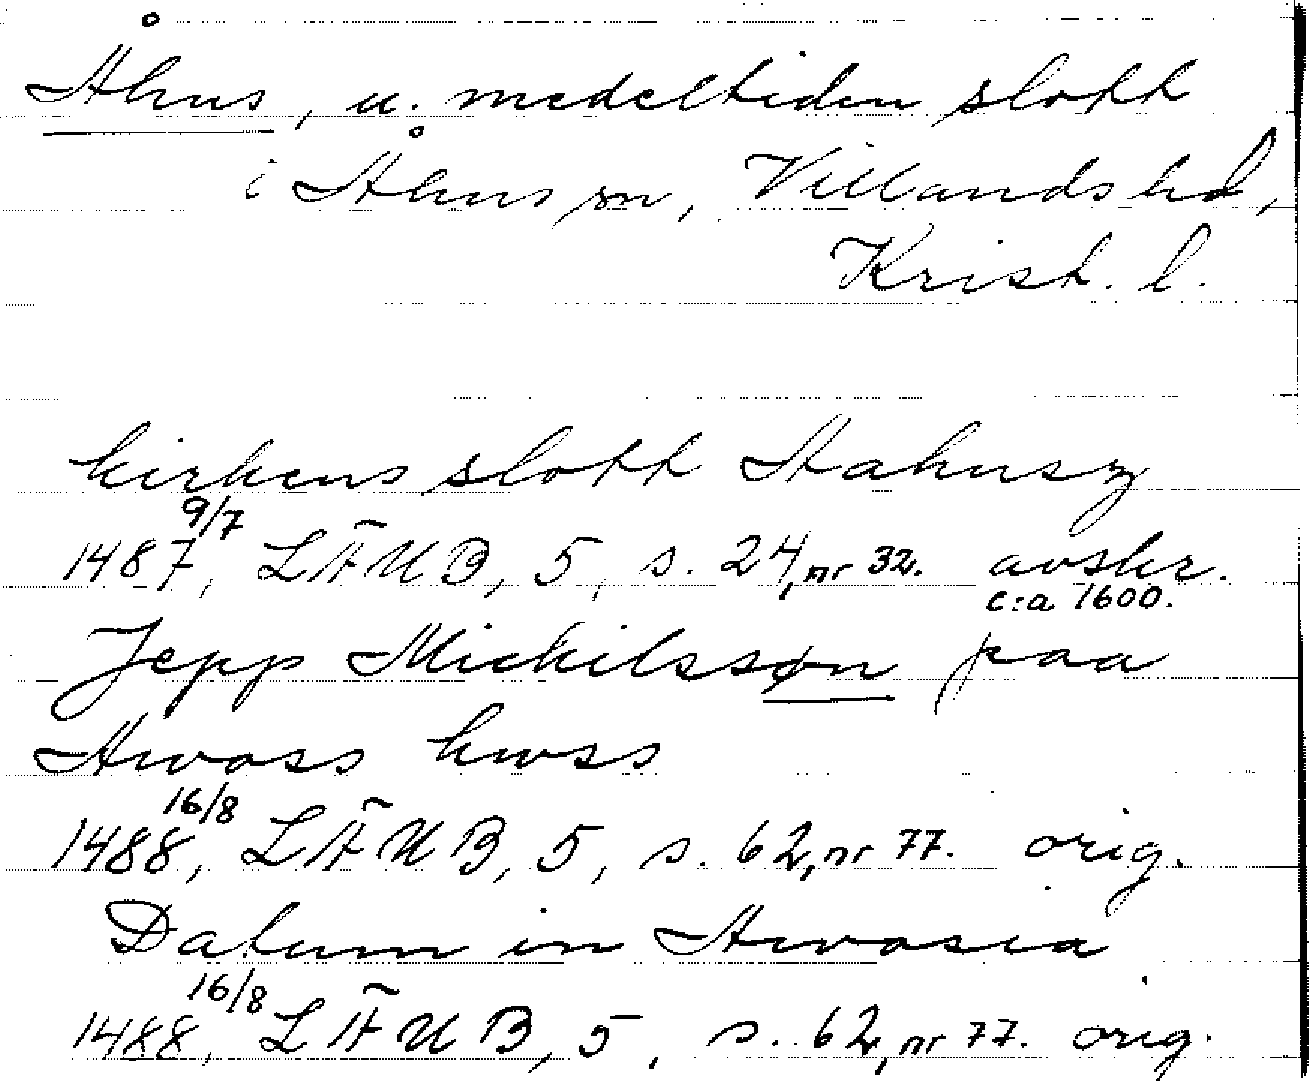 Åhus, u. medeltiden slott
i Åhus sn, Villands hd,
Krist. l.
kirkens slott Aahusz
1487 9/7, LÄUB, 5, s. 24, nr 32. avskr. c:a 1600.
Jepp Mickilssøn paa
Awoss hwss
1488 16/8, LÄUB, 5, s. 62, nr 77. orig.
Datum in Awosia
1488 16/8, LÄUB, 5, s. 62, nr 77. orig.